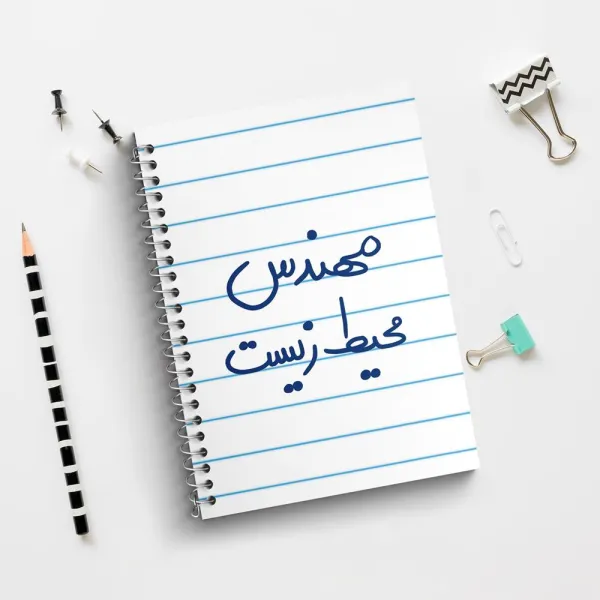 مهندس
محیط زیست